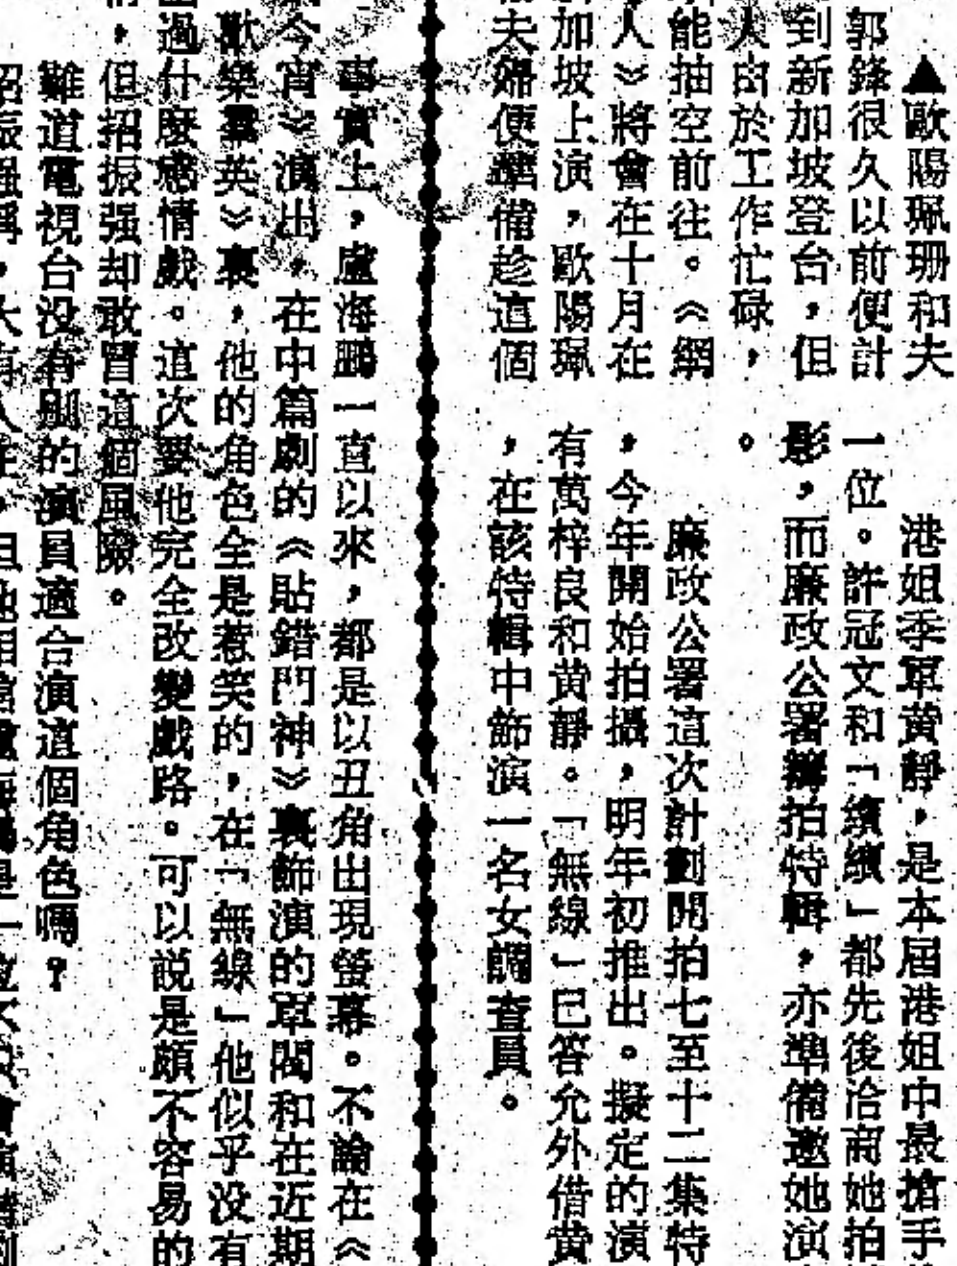 ▲歐陽珮珊和夫
郭鋒很久以前便計
到新加坡登台，但
人由於工作忙碌，
能抽空前往。《網
人》將會在十月在
加坡上演，歐陽珮
夫婦便準備趁這個
港姐季軍黃靜，是本屆港姐中最搶手
一位。許冠文和「繽繽」都先後洽商她拍
影，而廉政公署籌拍特輯，亦準備邀她演
。
廉政公署這次計劃開拍七至十二集特
，今年開始拍攝，明年初推出。擬定的演
有萬梓良和黃靜。「無線」已答允外借黃
，在該特輯中飾演一名女調查員。
事實上，盧海鵬一直以來，都是以丑角出現螢幕。不論在《
今宵》演出，在中篇劇的《貼錯門神》裏飾演的軍閥和在近期
歡樂羣英》裏，他的角色全是惹笑的，在「無線」他似乎没有
過什麼感情戲。這次要他完全改變戲路。可以説是頗不容易的
，但招振强却敢冒這個風險。
難道電視台没有別的演員適合演這個角色嗎？
招振强稱，大有人